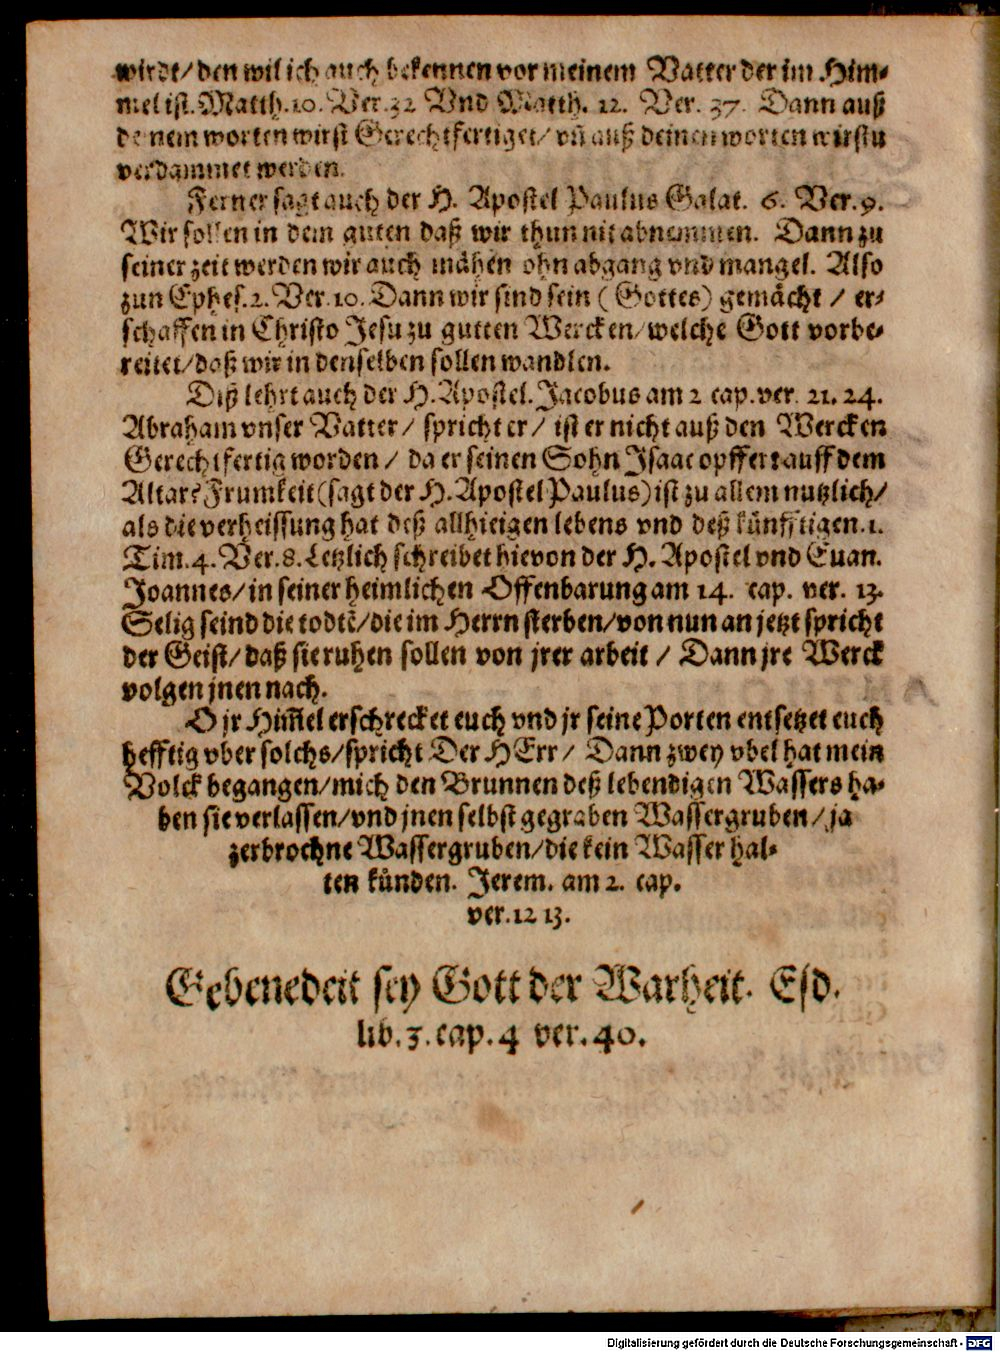 wirdt/ den wil ich auch bekennen vor meinem Vatter der im Him-
mel ist. Matth. 10. Ver. 32 Vnd Matth. 12. Ver. 37. Dann auß
deinem worten wirst Gerechtfertiget/ vñ auß deinen worten wirstu
verdammet werden.
Ferner sagt auch der H. Apostel Paulus Galat. 6. Ver. 9.
Wir sollen in dem guten daß wir thun nit abnemmen. Dann zu
seiner zeit werden wir auch mähen ohn abgang vnd mangel. Also
zun Ephes. 2. Ver. 10. Dann wir sind sein (Gottes) gemächt / er-
schaffen in Christo Jesu zu gutten Wercken/ welche Gott vorbe-
reitet/ daß wir in denselben sollen wandlen.
Diß lehrt auch der H. Apostel. Jacobus am 2 cap. ver. 21. 24.
Abraham vnser Vatter/ spricht er/ ist er nicht auß den Wercken
Gerechtfertig worden / da er seinen Sohn Isaac opffert auff dem
Altar? Frumkeit (sagt der H. Apostel Paulus) ist zu allem nutzlich/
als die verheissung hat deß allhieigen lebens vnd deß künfftigen. 1.
Tim. 4. Ver. 8. Letzlich schreibet hievon der H. Apostel vnd Euan.
Joannes/ in seiner heimlichen Offenbarung am 14. cap. ver. 13.
Selig seind die todtē/ die im Herrn sterben/ von nun an jetzt spricht
der Geist/ daß sie ruhen sollen von jrer arbeit / Dann jre Werck
volgen jnen nach.
O jr Him̄el erschrecket euch vnd jr seine Porten entsetzet euch
hefftig vber solchs/ spricht Der HErr / Dann zwey vbel hat mein
Volck begangen/ mich den Brunnen deß lebendigen Wassers ha-
ben sie verlassen/ vnd jnen selbst gegraben Wassergruben / ja
zerbrochne Wassergruben/ die kein Wasser hal-
ten künden. Jerem. am 2. cap.
ver. 12 13.
Gebenedeit sey Gott der Warheit. Esd.
lib. 3. cap. 4 ver. 40.
Digitalisierung gefördert durch die Deutsche Forschungsgemeinschaft - DFG